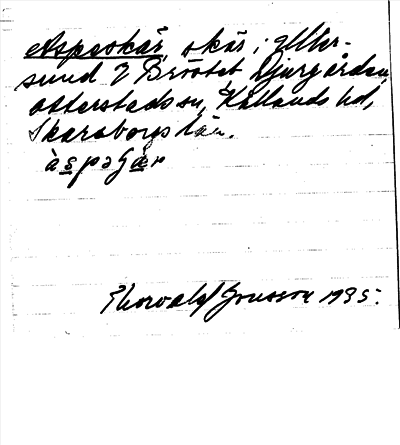 Aspeskär, skär i Eller-
sund I Bröstet Djurgården
Otterstads sn, Kållands hd,
Skaraborgs län.
àspəʃær
Thorvald Jonsson 1935.